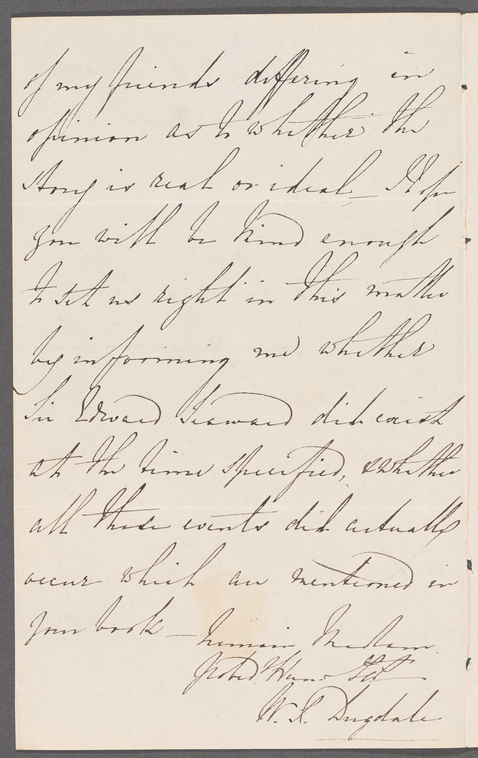 of my friends differing in
opinion as to whether the
story is real or ideal_ I hope
you will be kind enough
to set us right in this matter
by informing me whether
Sir Edward Seaward did exist
at the time specified, & whether
all these events did actually
occur which are mentioned in
your book _ I remain Madam
Serv.t
W. S. Dugdale